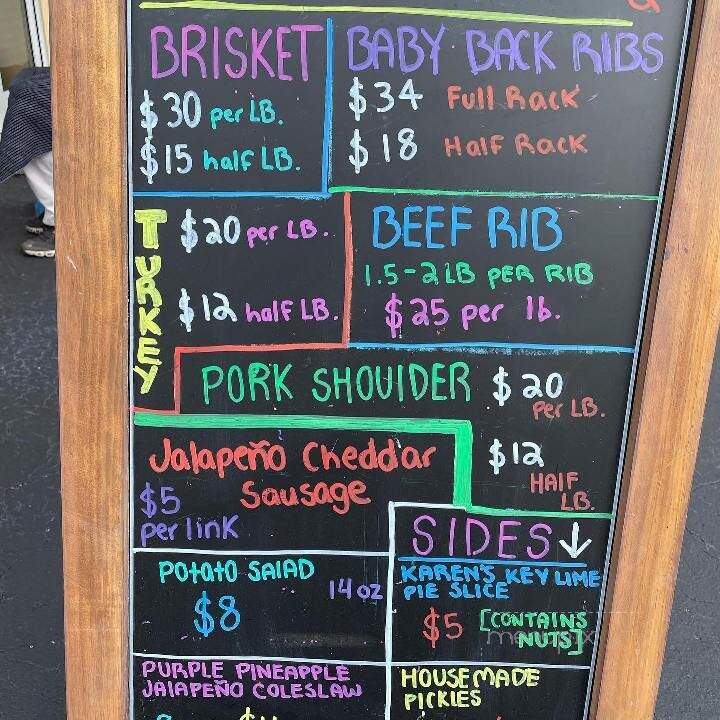 BRISKET
$30 per LB.
$15 half LB.
BABY BACK RIBS
$34 Full Rack
$18 Half Rack
TURKEY
$20 per LB.
$12 half LB.
BEEF RIB
1.5-2 LB PER RIB
$25 per lb.
PORK SHOULDER $20
per LB.
$12
HALF
LB.
Jalapeño Cheddar
Sausage
$5
per link
SIDES
Potato Salad
14 oz
$8
KAREN'S KEY LIME
PIE SLICE
$5 [CONTAINS
NUTS]
PURPLE PINEAPPLE
JALAPEÑO COLESLAW
HOUSEMADE
PICKLES